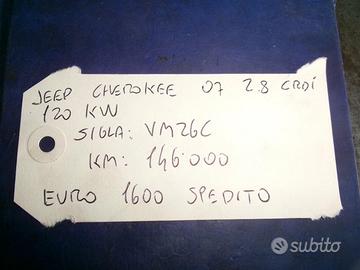 JEEP CHEROKEE 07 2.8 CRDi
120 KW
SIGLA: VM26C
KM: 146.000
EURO 1600 SPEDITO
subito